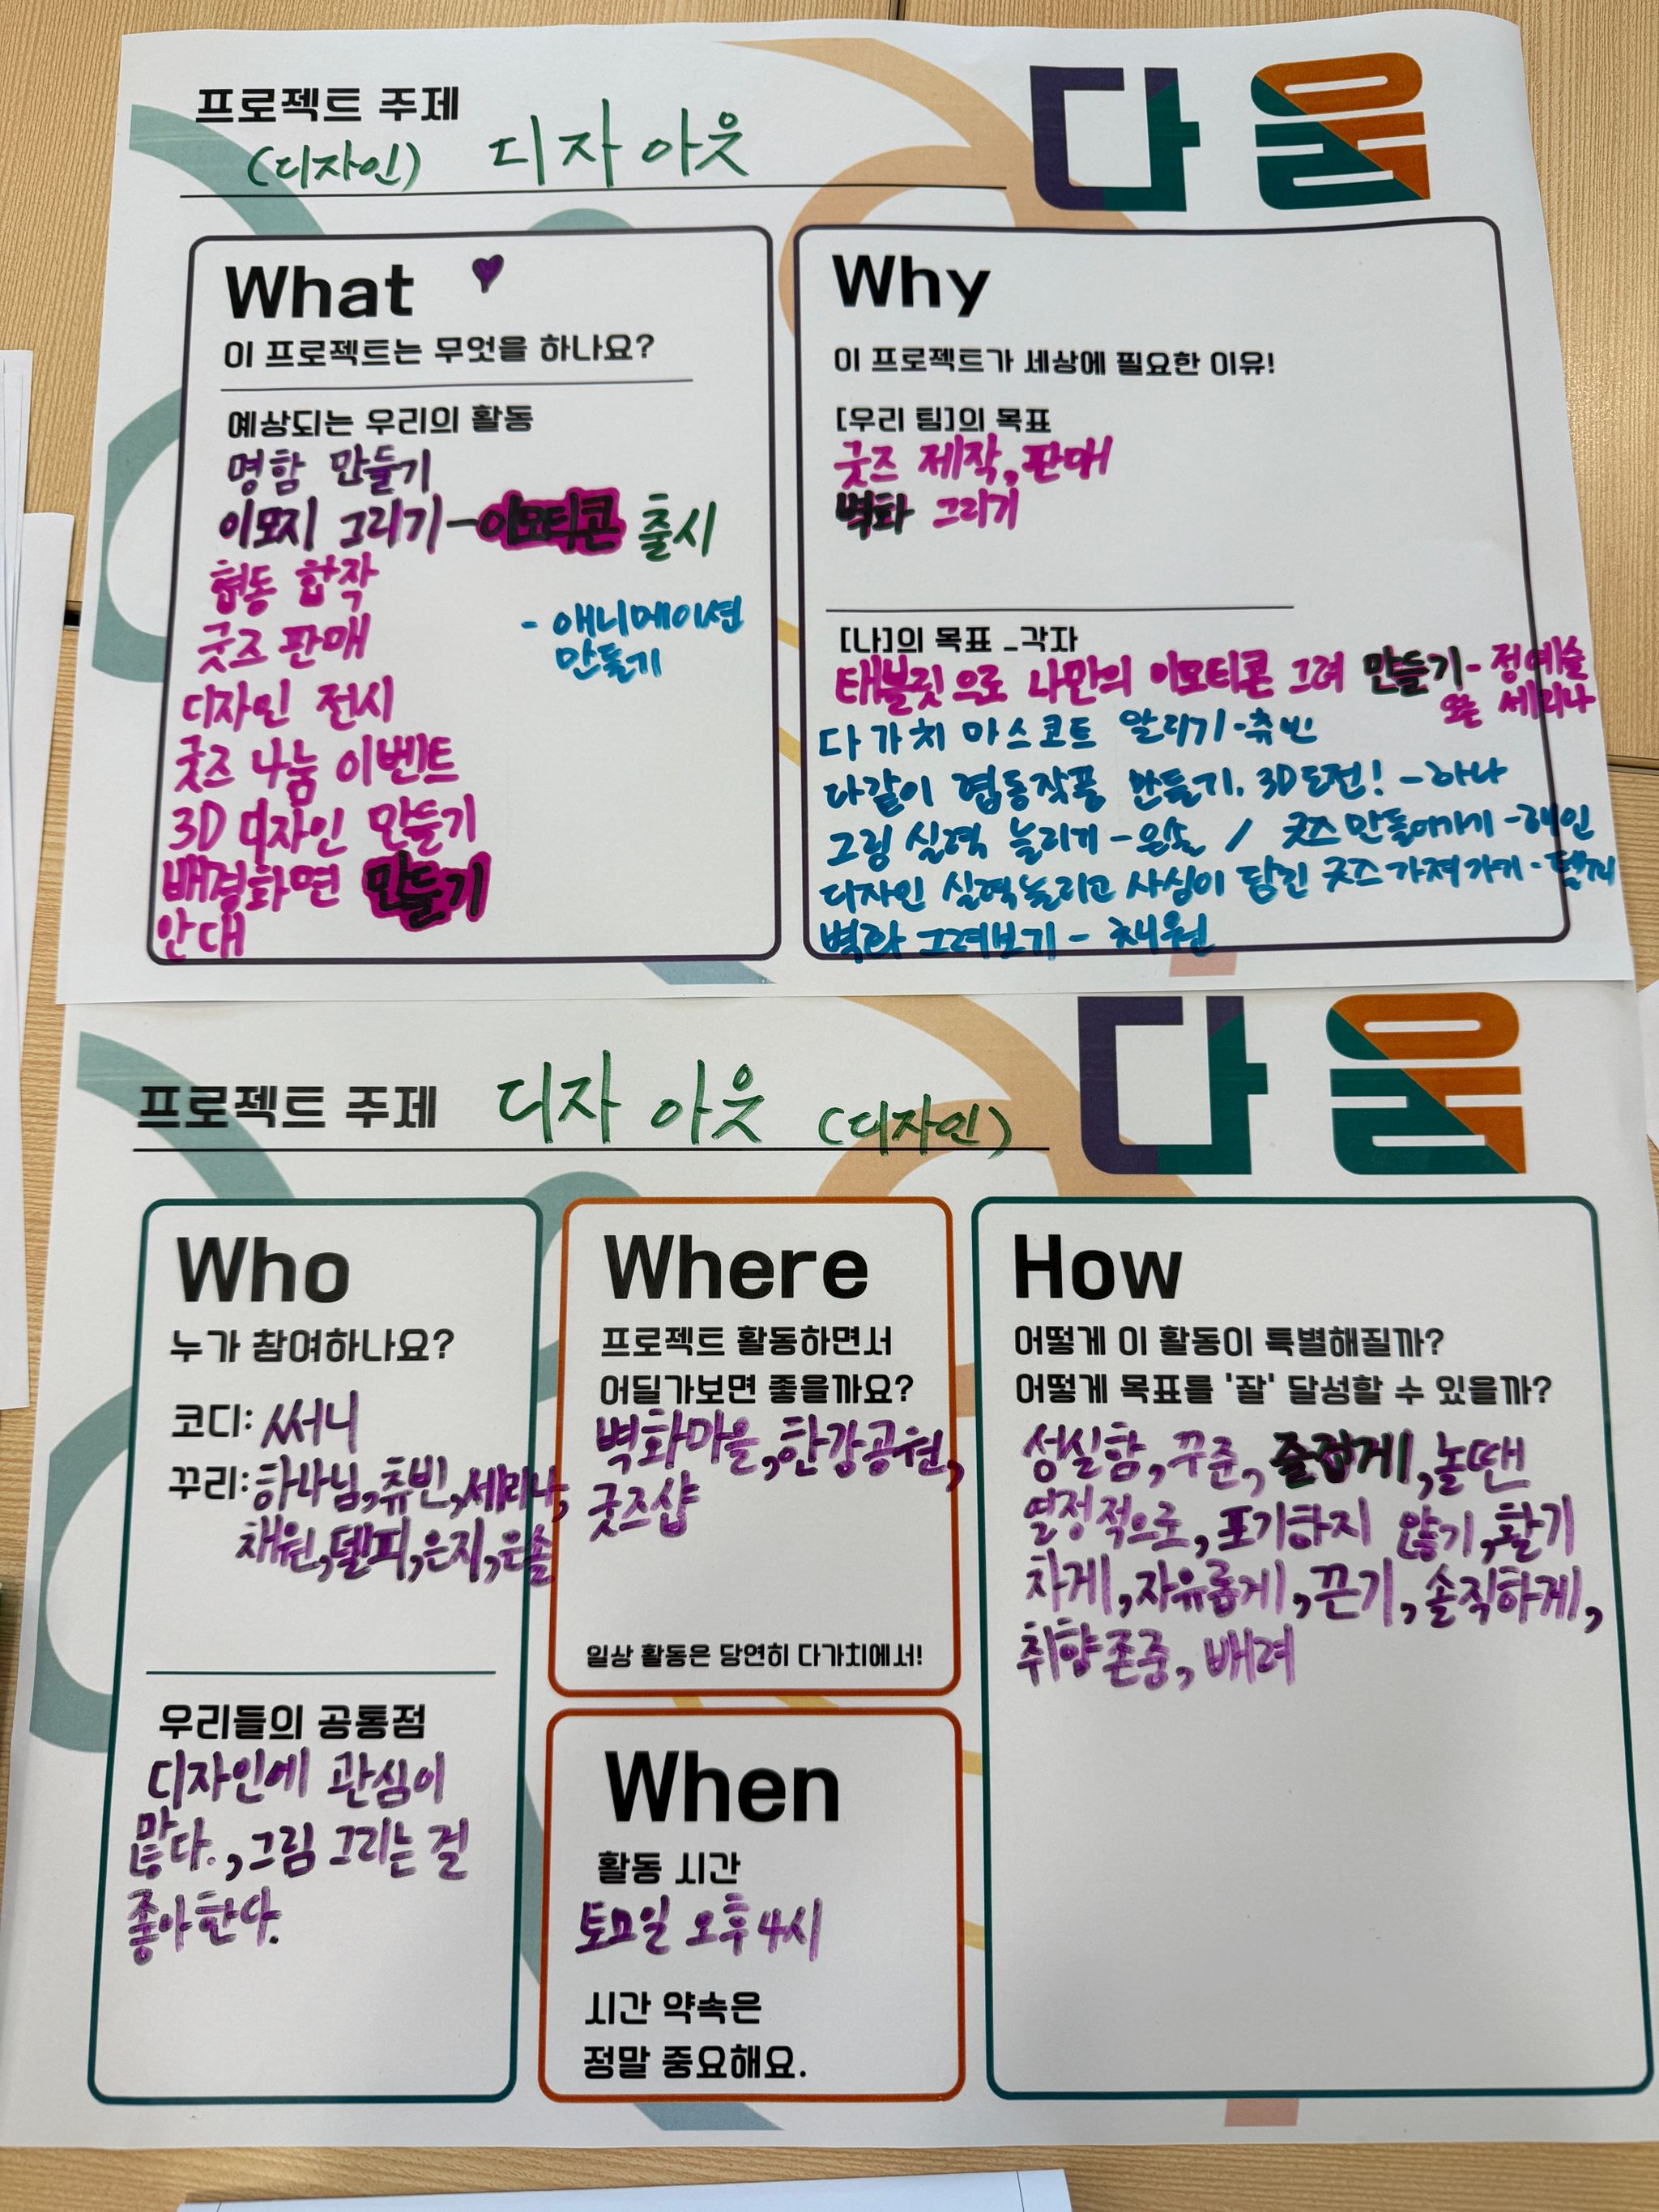 프로젝트 주제
(디자인) 디자 아웃
다움
What
이 프로젝트는 무엇을 하나요?
예상되는 우리의 활동
명함 만들기
이모지 그리기-이모티콘 출시
협동 합작
굿즈 판매
- 애니메이션
만들기
디자인 전시
굿즈 나눔 이벤트
3D 디자인 만들기
배경화면 만들기
안대
Why
이 프로젝트가 세상에 필요한 이유!
[우리 팀]의 목표
굿즈 제작, 판매
벽화 그리기
[나]의 목표 _각자
태블릿으로 나만의 이모티콘 그려 만들기- 정예슬
세리나
다가치 마스코트 알리기-츄빈
다같이 협동작품 만들기. 3D도전! -하나
그림 실력 늘리기-은솔 / 굿즈 만들어가기-해인
디자인 실력늘리고 사심이 담긴 굿즈 가져가기-델피
벽화 그려보기- 채원
프로젝트 주제 디자 아웃 (디자인)
다움
Who
누가 참여하나요?
코디: 써니
꾸리: 하나님, 츄빈, 세리나,
채원, 델피, 은지, 은솔
우리들의 공통점
디자인에 관심이
많다. , 그림 그리는 걸
좋아한다.
Where
프로젝트 활동하면서
어딜가보면 좋을까요?
벽화마을, 한강공원,
굿즈샵
일상 활동은 당연히 다가치에서!
When
활동 시간
토요일 오후 4시
시간 약속은
정말 중요해요.
How
어떻게 이 활동이 특별해질까?
어떻게 목표를 '잘' 달성할 수 있을까?
성실함, 꾸준, 즐겁게, 놀땐
열정적으로, 포기하지 않기, 활기
차게, 자유롭게, 끈기, 솔직하게,
취향존중, 배려